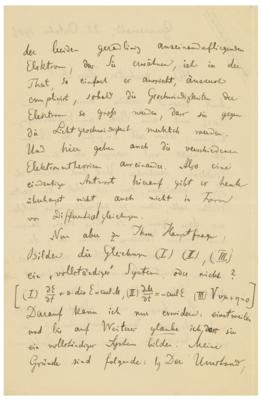 der beiden geradlinig auseinanderfliegenden
Elektronen, das Sie erwähnen, ist in der
That, so einfach er aussieht, äusserst
complicirt, sobald die Geschwindigkeiten der
Elektronen so gross werden, dass sie gegen
die Lichtgeschwindigkeit merklich werden.
Und hier gehen auch die verschiedenen
Elektronentheorien auseinander. Also eine
eindeutige Antwort hierauf gibt es heute
überhaupt nicht, auch nicht in Form
von Differentialgleichungen.
Nun aber zu Ihrer Hauptfrage.
Bilden die Gleichungen (I) (II), (III)
ein "vollständiges" System, oder nicht?
Darauf kann ich nur erwidern: einstweilen
und bis auf Weiteres glaube ich, dass sie
ein vollständiges System bilden. Meine
Gründe sind folgende: 1) Der Umstand,